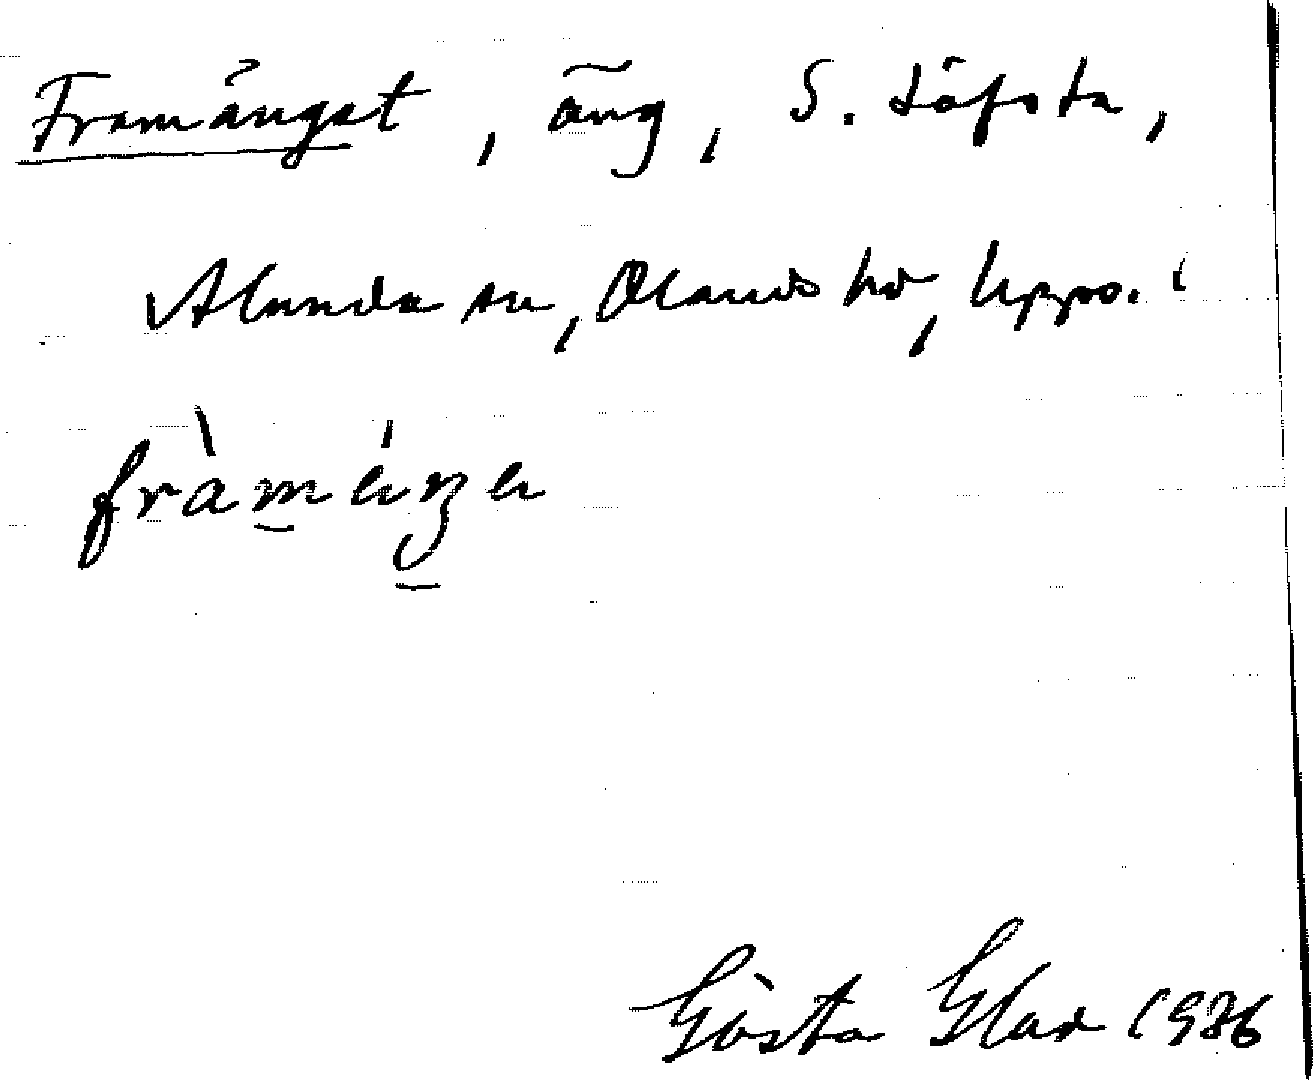 Framänget, äng, S. Löfsta,
Alunda sn, Olands hd, Uppl.
fràmǽŋa
Gösta Glad 1936